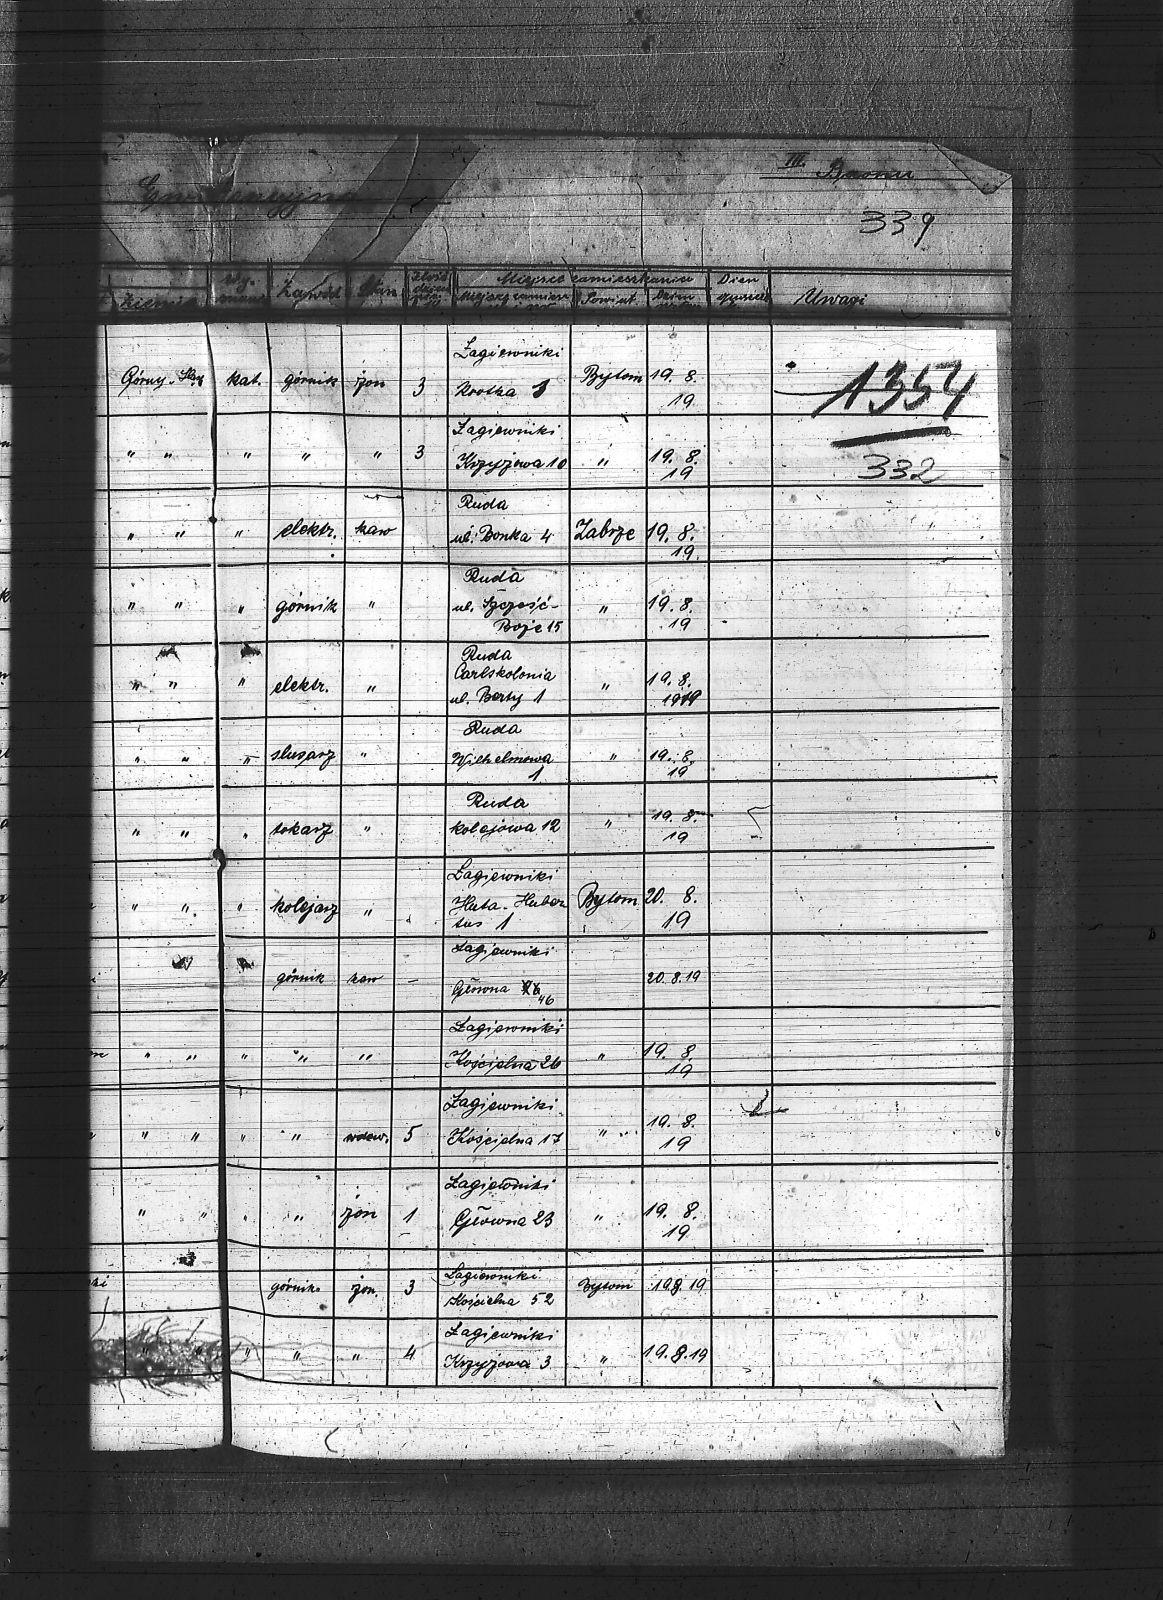 III. Baonu
339
Ziemia Zawód Stan Miejsce zamieszkania Dzień
Powiat Dzień Uwagi
Łagiewniki
Górny-Śląsk kat. górnik żon 3 Krotka 1 Bytom 19. 8.
19
1354
Łagiewniki
" " " " " 3 Krzyżowa 10 " 19. 8.
19
332
Ruda
" " " elektr. kaw ul. Bonka 4 Zabrze 19. 8.
19.
Ruda
" " " górnik " ul. Szczęść- " 19. 8.
Boże 15 19
Ruda
Carlskolonia
" " " elektr. " ul. Berty 1 " 19. 8.
1919
Ruda
" " " slusarz " Wilhelmowa " 19. 8.
1 19
Ruda
" " " tokarz " kolejowa 12 " 19. 8.
19
Łagiewniki
" " " kolejarz " Huta-Huber Bytom 20. 8.
tus 1 19
Łagiewniki
górnik kaw – Główna 46 20.8.19
Łagiewniki
" " " " " Kościelna 26 " 19. 8.
19
Łagiewniki
" " " " wdow. 5 Kościelna 17 " 19. 8.
19
Łagiewniki
" " " " żon 1 Główna 23 " 19. 8.
19
Łagiewniki
górnik żon. 3 Kościelna 52 Bytom 19.8.19
Łagiewniki
" " " " " 4 Krzyżowa 3 " 19.8.19